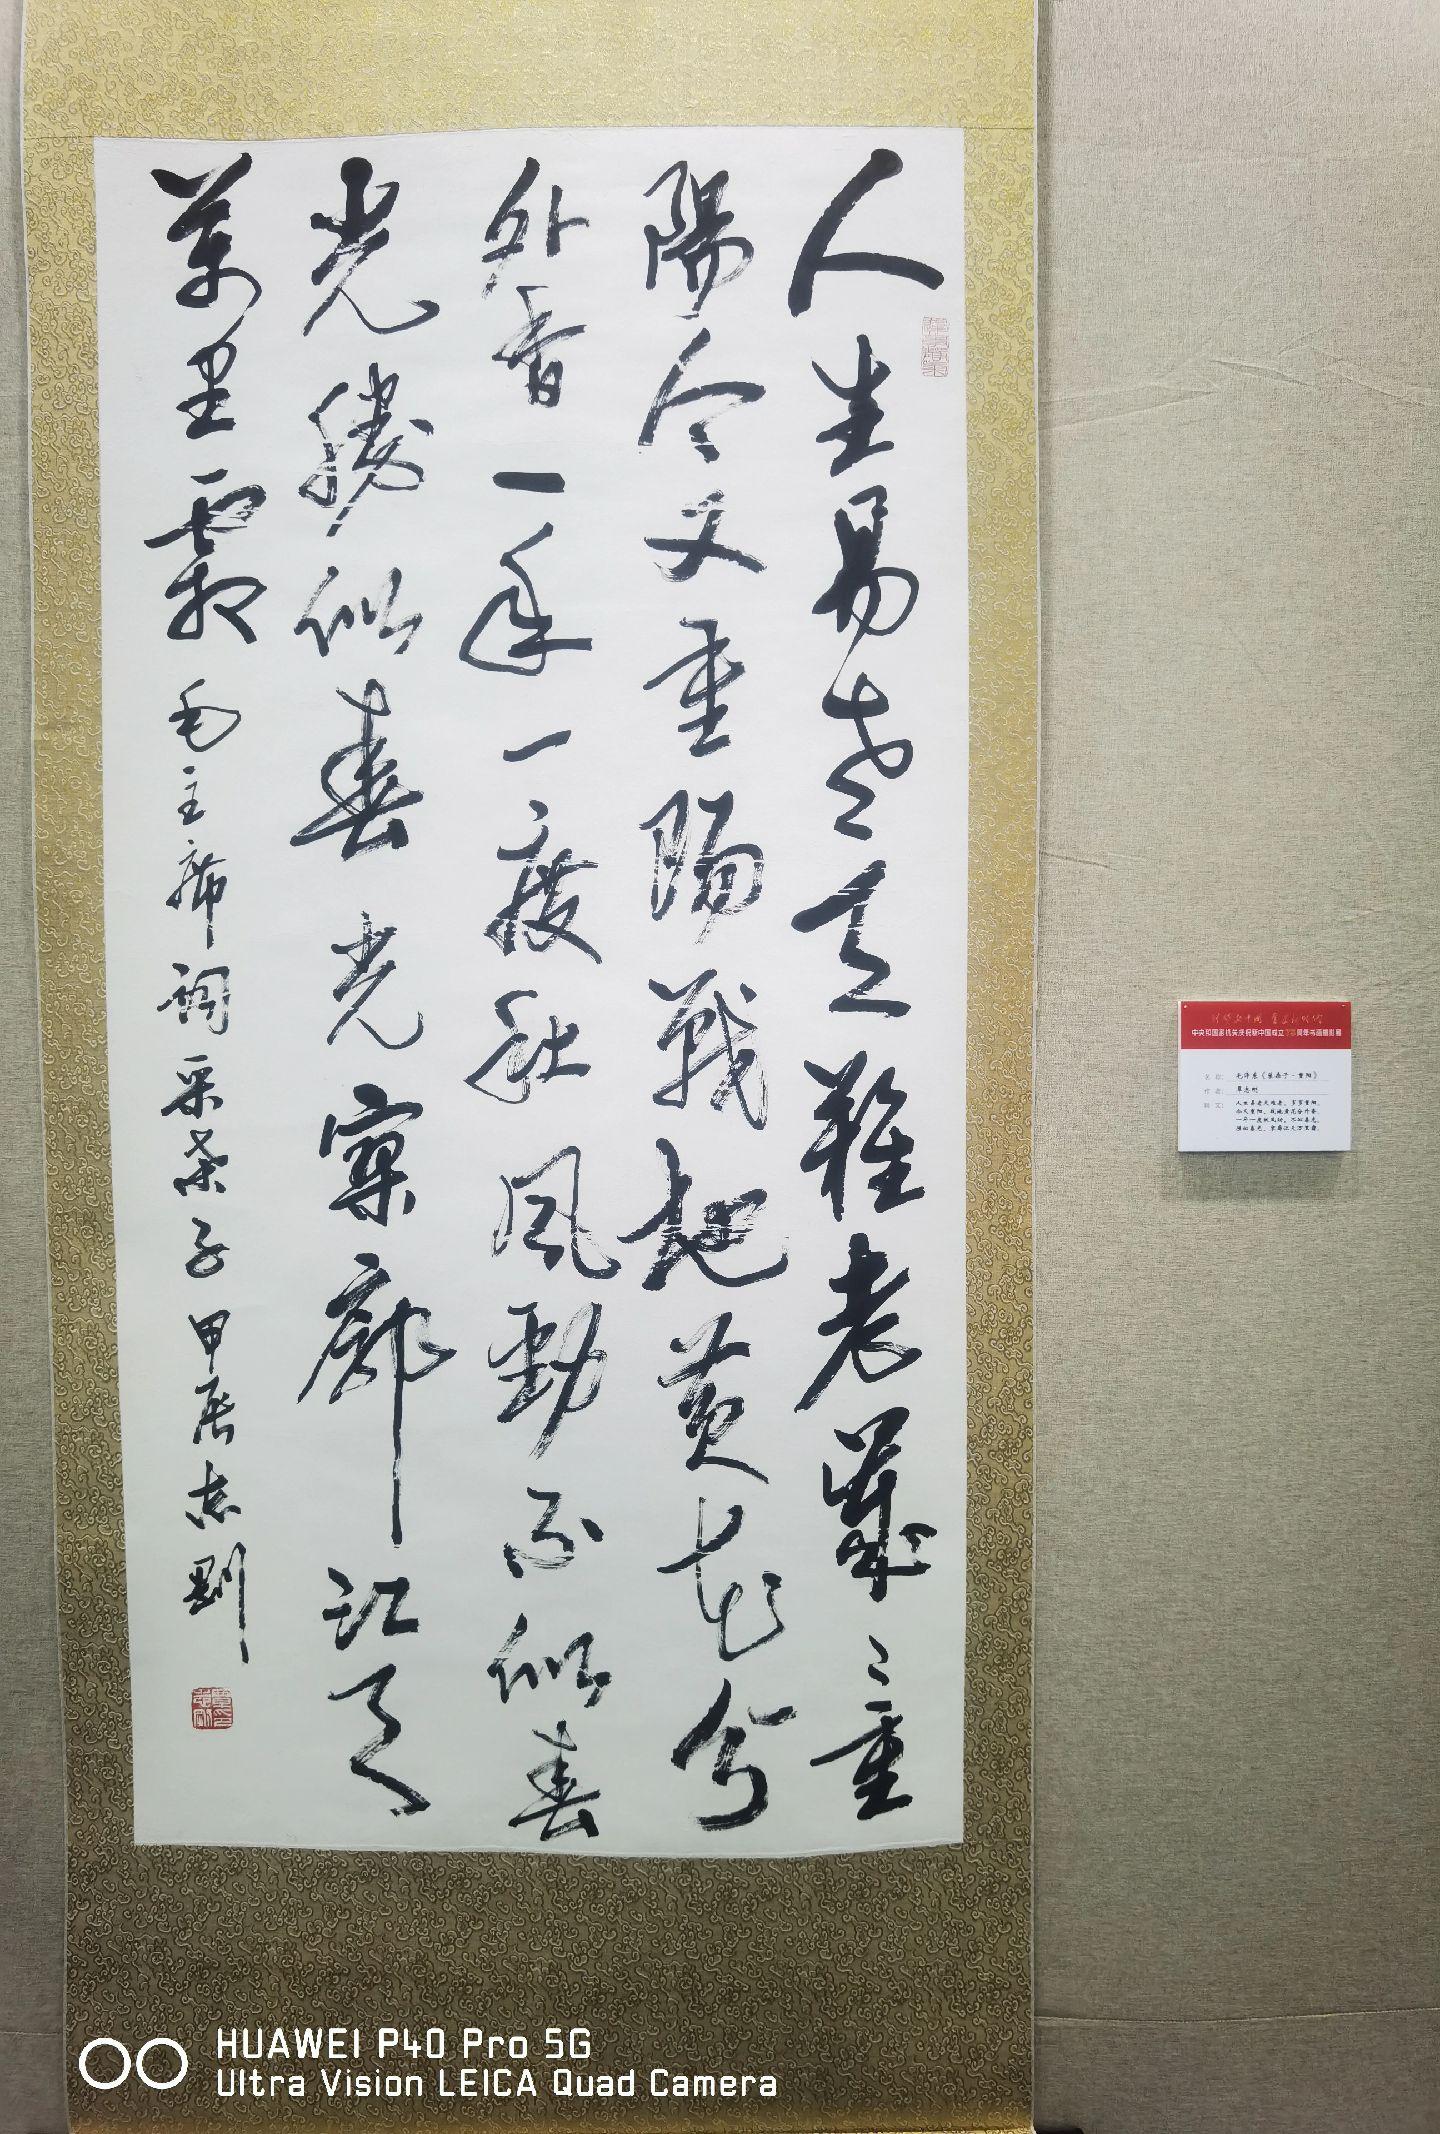 人生易老天難老歲〻重
陽今又重陽戰地黃花分
外香一年一度秋風勁不似春
光勝似春光寥廓江天
萬里霜 毛主席詞采桑子 甲辰志剛
中央和国家机关庆祝新中国成立75周年书画摄影展
名称: 毛泽东《采桑子·重阳》
作者: 覃志刚
释文: 人生易老天难老,岁岁重阳。
今又重阳,战地黄花分外香。
一年一度秋风劲,不似春光。
胜似春光,寥廓江天万里霜。
HUAWEI P40 Pro 5G
Ultra Vision LEICA Quad Camera